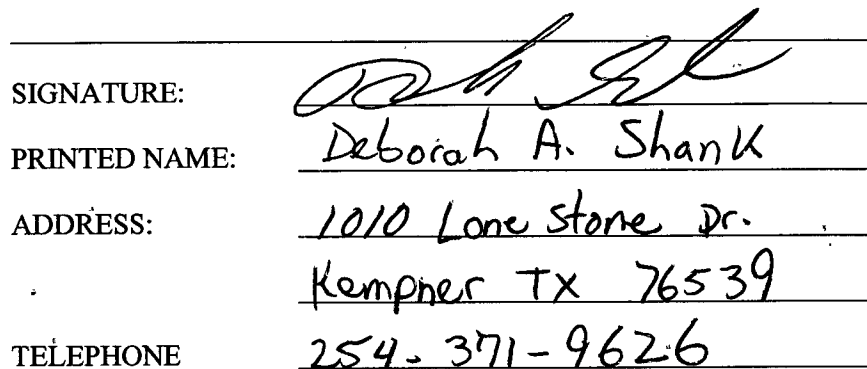 SIGNATURE:
PRINTED NAME: Deborah A. Shank
ADDRESS: 1010 Lone Stone Dr.
Kempner TX 76539
TELEPHONE 254-371-9626